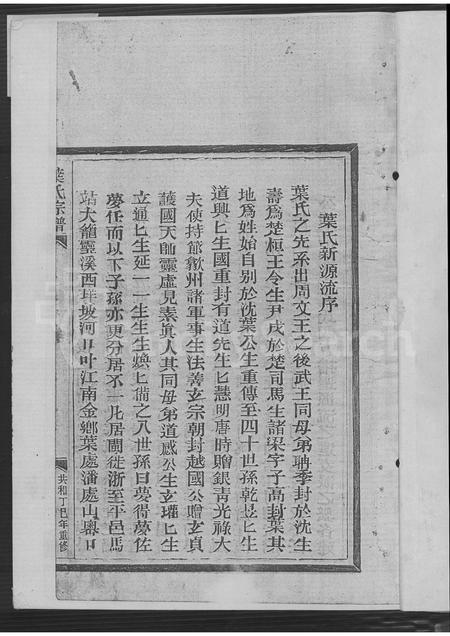 葉氏新源流序
葉氏之先系出周文王之後武王同母弟聃季封於沈生
壽為楚桓王令生尹戌於楚司馬生諸梁字子高封葉其
地為姓始自別於沈葉公生重傳至四十世孫乾昱匕生
道興匕生國重封有道先生匕慧明唐時贈銀青光祿大
夫使持節歙州諸軍事生法善玄宗朝封越國公贈玄貞
護國天師靈虛見素真人其同母弟道感公生玄瓘匕生
立通匕生延一一生生生煥匕備之八世孫曰夢得夢佐
夢任而以下子孫亦更分居不一凡居閩徙浙至平邑馬
站大龍靈溪西垟坡河口叶江南金鄉葉處潘處山輿口
葉氏宗譜
共和丁巳年重修